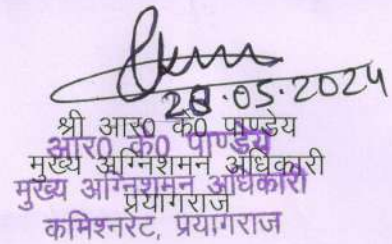 28.05.2024
श्री आर0 के0 पाण्डेय
आर0 के0 पाण्डेय
मुख्य अग्निशमन अधिकारी
मुख्य अग्निशमन अधिकारी
प्रयागराज
कमिश्नरेट, प्रयागराज